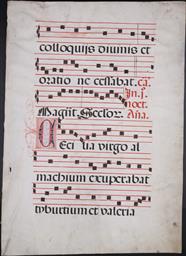 colloquijs diuinis et
oratio ne cessabat. ca.
In.ij.
noct.
Magnīt. Seclor. Aña.
Ceci lia virgo al
machium exuperabat
tyburtium et valeria